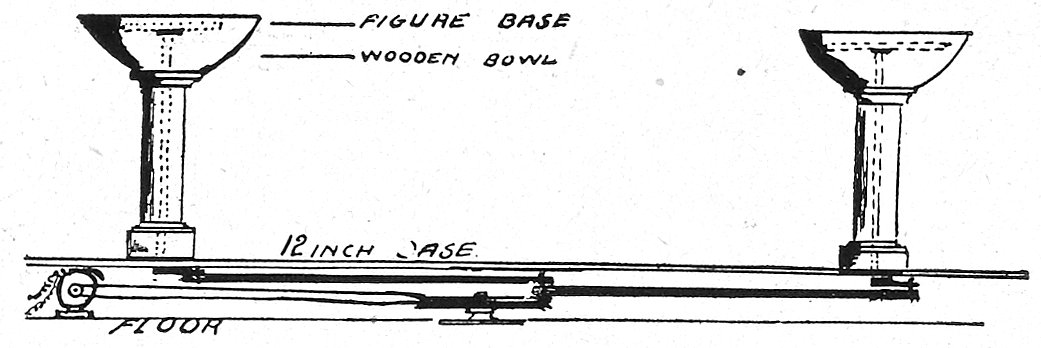 FIGURE BASE
WOODEN BOWL
12 INCH BASE.
FLOOR